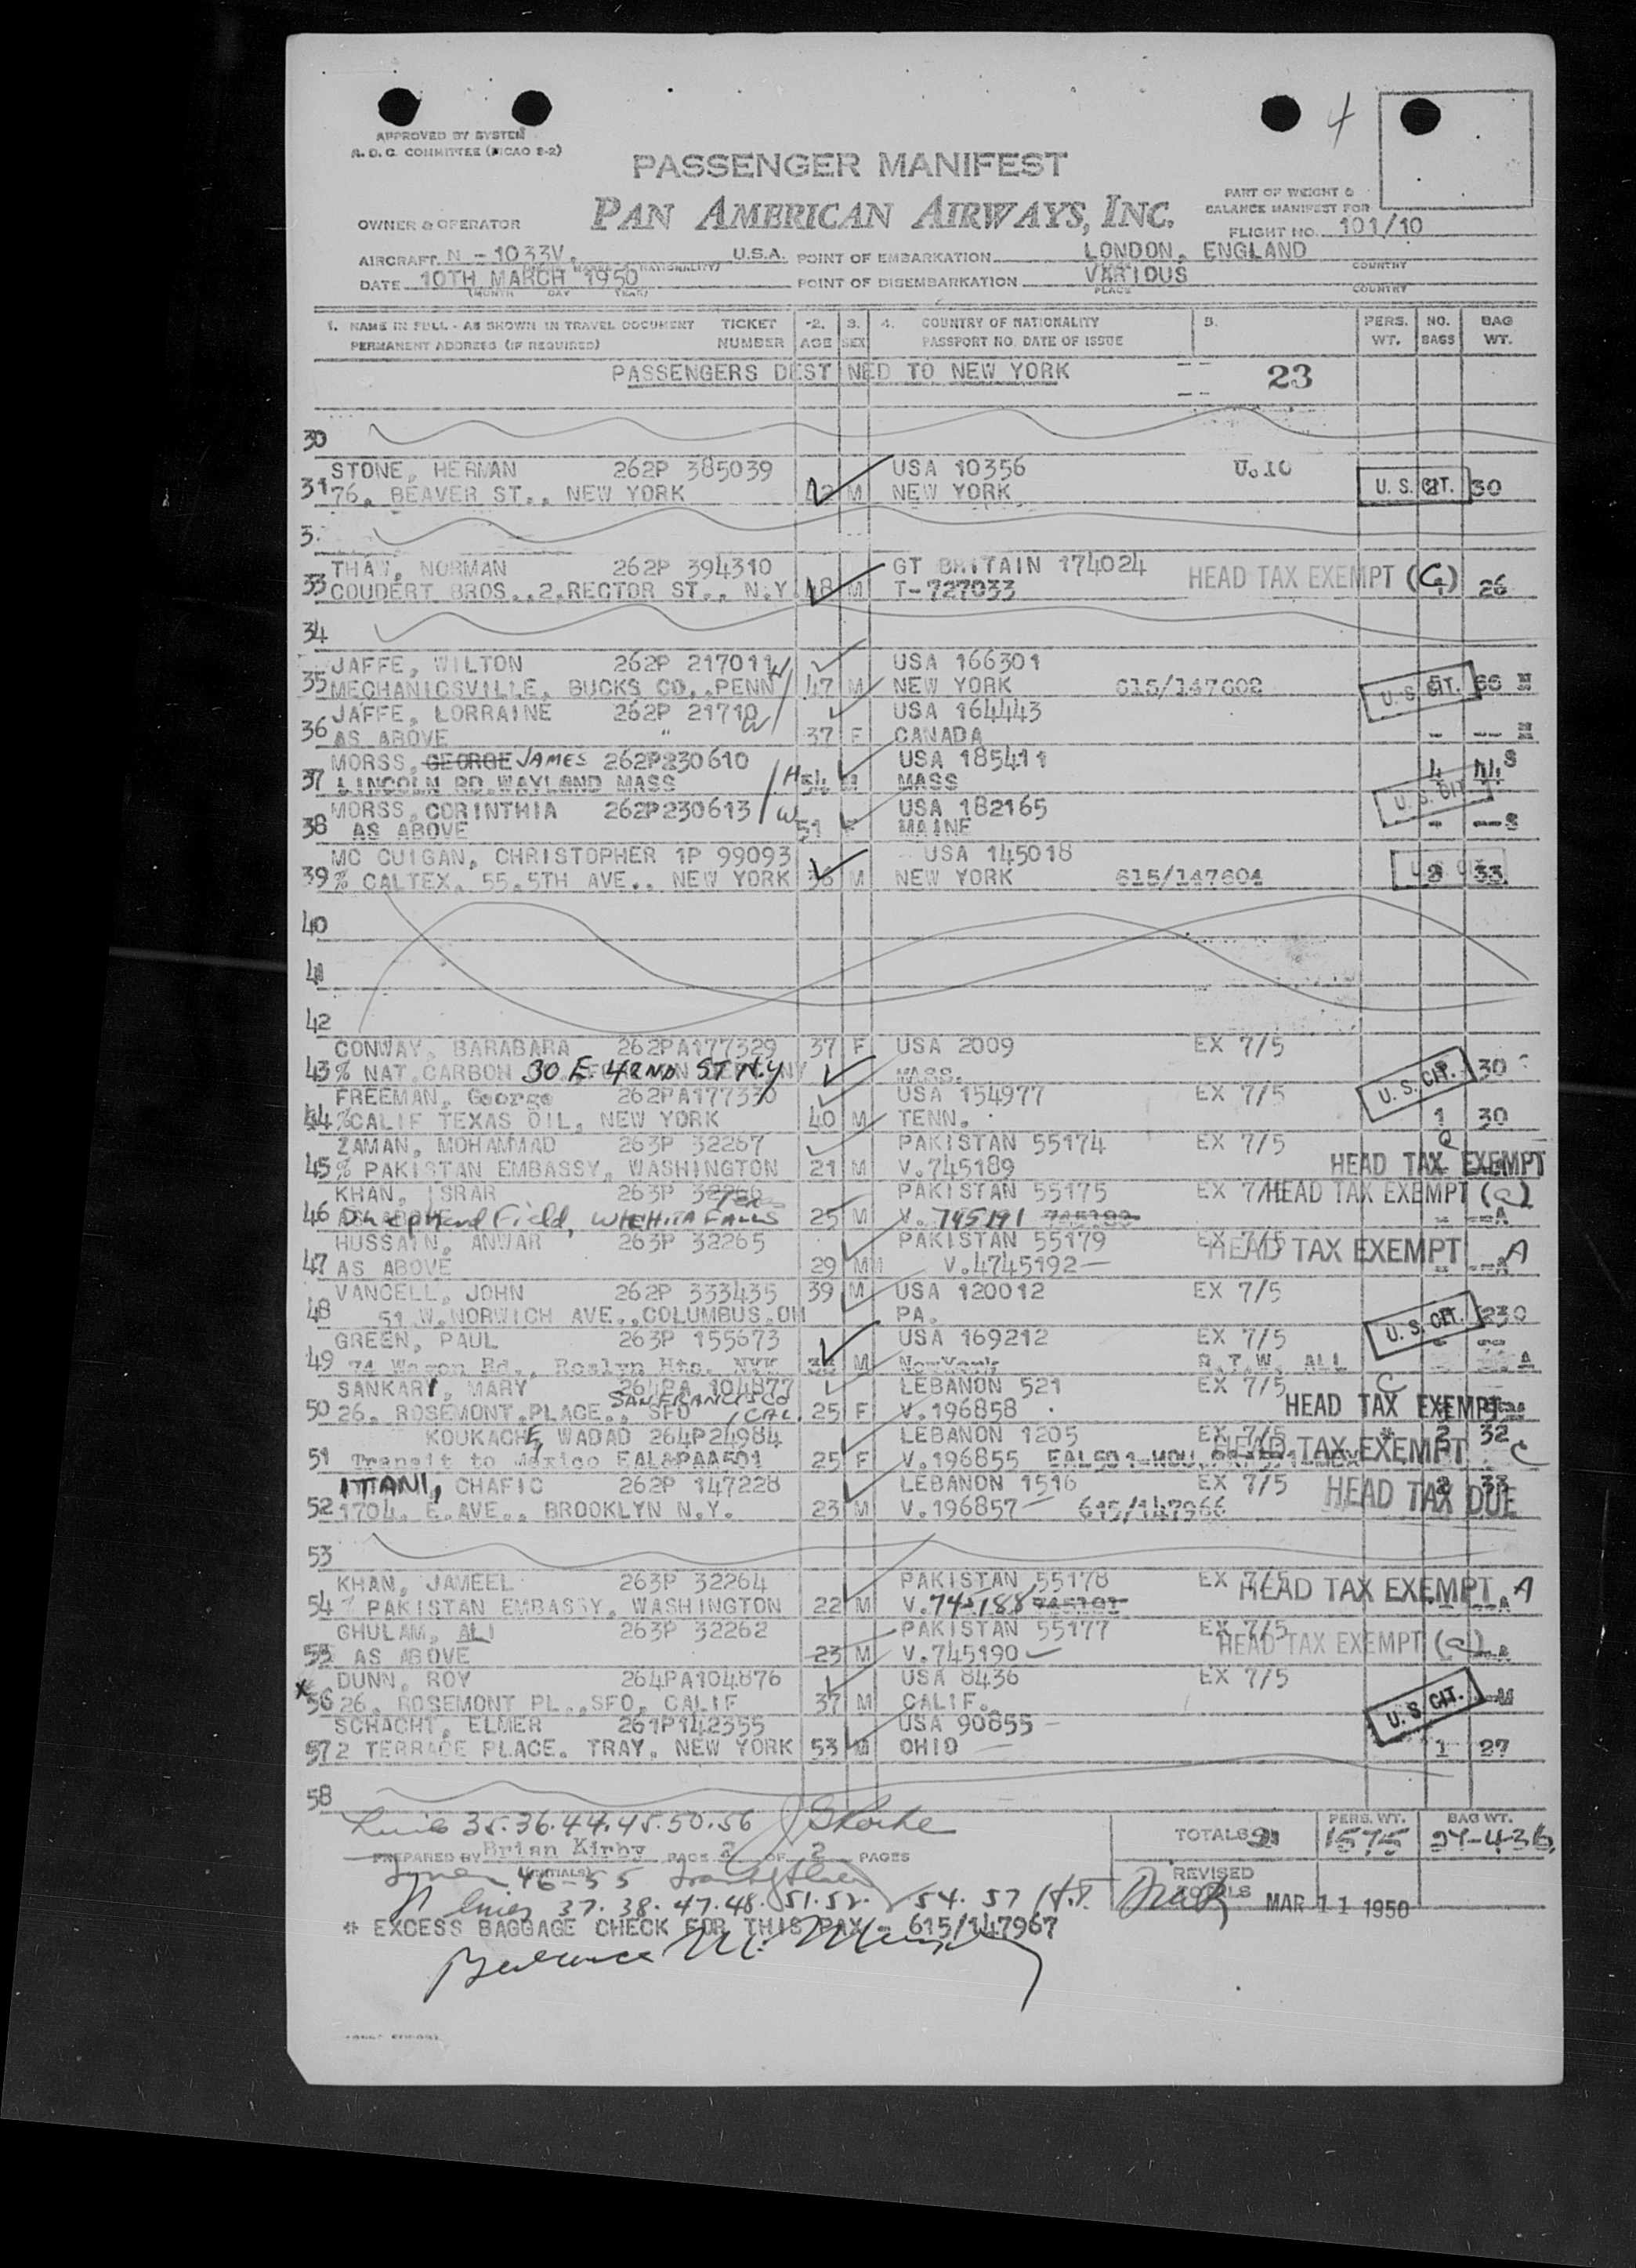 4
APPROVED BY SYSTEM
A. D. C. COMMITTEE (PICAO S-2)
PASSENGER MANIFEST
PAN AMERICAN AIRWAYS, INC.
PART OF WEIGHT &
BALANCE MANIFEST FOR
FLIGHT NO. 101/10
OWNER & OPERATOR
AIRCRAFT N - 1033V, U.S.A. POINT OF EMBARKATION LONDON, ENGLAND
DATE 10TH MARCH 1950 POINT OF DISEMBARKATION VARIOUS
(MONTH DAY YEAR) PLACE COUNTRY
1. NAME IN FULL - AS SHOWN IN TRAVEL DOCUMENT TICKET 2. 3. 4. COUNTRY OF NATIONALITY 5. PERS. NO. BAG
PERMANENT ADDRESS (IF REQUIRED) NUMBER AGE SEX PASSPORT NO. DATE OF ISSUE WT. BAGS WT.
PASSENGERS DESTINED TO NEW YORK -- 23
30
STONE, HERMAN 262P 385039 USA 10356 U.10
31 76, BEAVER ST., NEW YORK 42 M NEW YORK U. S. CIT. 30
3
THAW, NORMAN 262P 394310 GT BRITAIN 174024
33 COUDERT BROS.,2,RECTOR ST., N.Y 48 M T-727033 HEAD TAX EXEMPT (G) 26
34
JAFFE, WILTON 262P 217011 USA 166301
35 MECHANICSVILLE, BUCKS CO,.PENN 47 M NEW YORK 615/147602 U. S. CIT. 66 M
JAFFE, LORRAINE 262P 21710 W USA 164443
36 AS ABOVE " 37 F CANADA - -- M
MORSS, GEORGE JAMES 262P230610 USA 185411
37 LINCOLN RD.WAYLAND MASS H 54 M MASS 4 44 S
MORSS, CORINTHIA 262P230613 W USA 182165 U. S. CIT.
38 AS ABOVE 51 F MAINE - --S
MC CUIGAN, CHRISTOPHER 1P 99093 USA 145018
39 % CALTEX, 55.5TH AVE., NEW YORK 36 M NEW YORK 615/147604 U. S. CIT. 33
40
41
42
CONWAY, BARABARA 262PA177329 37 F USA 2009 EX 7/5
43 % NAT.CARBON 30 E. 42ND ST N.Y MASS. 30
FREEMAN, George 262PA177330 USA 154977 EX 7/5 U. S. CIT.
44 %CALIF TEXAS OIL, NEW YORK 40 M TENN. 1 30
ZAMAN, MOHAMMAD 263P 32267 PAKISTAN 55174 EX 7/5
45 % PAKISTAN EMBASSY, WASHINGTON 21 M V.745189 HEAD TAX EXEMPT
KHAN, ISRAR 263P 32266 PAKISTAN 55175 EX 7/ HEAD TAX EXEMPT (a)
46 Shepherd Field, WICHITA FALLS Tex 25 M V. 745191 - --A
HUSSAIN, ANWAR 263P 32265 PAKISTAN 55179 EX 7/5 HEAD TAX EXEMPT A
47 AS ABOVE 29 M V.4745192 - --A
VANCELL, JOHN 262P 333435 39 M USA 120012 EX 7/5
48 51 W.NORWICH AVE.,COLUMBUS,OH PA. U. S. CIT. 230
GREEN, PAUL 263P 155673 USA 169212 EX 7/5
49 74 Wagon Rd., Roslyn Hts. NYK M NewYork R.T.W. ALL A
SANKARY, MARY 264PA 104877 LEBANON 521 EX 7/5 C
50 26, ROSEMONT.PLACE., SFO SAN FRANCISCO, CAL. 25 F V.196858 HEAD TAX EXEMPT
KOUKACHE, WADAD 264P24984 LEBANON 1205 EX 7/5 * 2 32
51 Transit to Mexico EAL&PAA501 25 F V.196855 HEAD TAX EXEMPT C
ITANI, CHAFIC 262P 147228 LEBANON 1516 EX 7/5 33
52 1704, E.AVE., BROOKLYN N.Y. 23 M V.196857 615/147966 HEAD TAX DUE
53
KHAN, JAMEEL 263P 32264 PAKISTAN 55178 EX 7/5 HEAD TAX EXEMPT A
54 % PAKISTAN EMBASSY, WASHINGTON 22 M V.745188 --A
GHULAM, ALI 263P 32262 PAKISTAN 55177 EX 7/5
55 AS ABOVE 23 M V.745190 HEAD TAX EXEMPT (a) A
DUNN, ROY 264PA104876 USA 8436 EX 7/5
x 56 26, ROSEMONT PL.,SFO, CALIF 37 M CALIF. U. S. CIT. --M
SCHACHT, ELMER 261P142355 USA 90855
57 2 TERRACE PLACE. TRAY, NEW YORK 53 M OHIO 1 27
58
35.36.44.45.50.56
TOTALS PERS. WT. 1575 BAG WT. 436
PREPARED BY Brian Kirby PAGE 2 OF 2 PAGES
(INITIALS) 46-55
REVISED TOTALS
37. 38. 47.48. 51.52. 54. 57
MAR 11 1950
* EXCESS BAGGAGE CHECK FOR THIS PAX - 615/147967